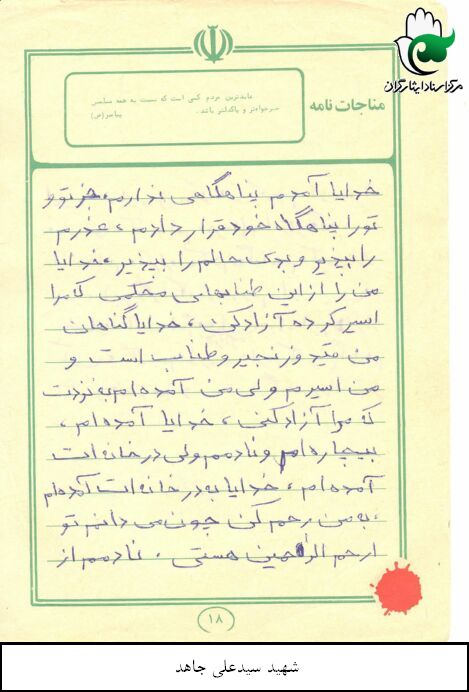 مرکز اسناد ایثارگران
مناجات نامه
عابدترین مردم کسی است که نسبت به همه مسلمین
خیرخواه‌تر و پاکدلتر باشد.
پیامبر(ص)
خدایا آمدم پناهگاهی ندارم، جز تو و
تو را پناهگاه خود قرار دادم، عذرم
را بپذیر و بدی حالم را بپذیر، خدایا
من را از این طنابهای محکمی که مرا
اسیر کرده آزاد کن، خدایا گناهان
من قید و زنجیر و طناب است و
من اسیرم ولی من آمده‌ام به نزدت
که مرا آزاد کنی، خدایا آمده‌ام،
بیچاره‌ام و نادمم ولی در خانه‌ات
آمده‌ام، خدایا به در خانه‌ات آمده‌ام
، به من رحم کن چون می دانم تو
ارحم الراحمین هستی، نادمم از
۱۸
شهید سیدعلی جاهد